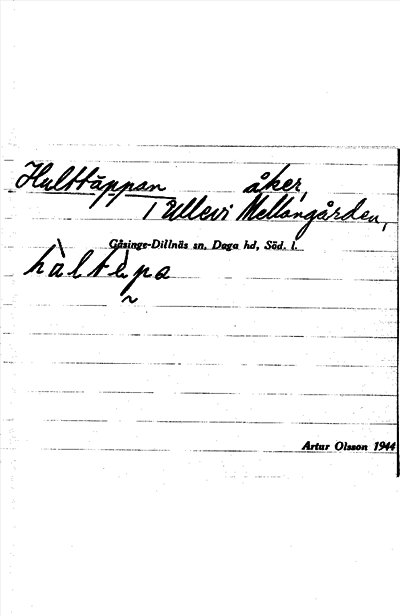 Hulttäppan åker,
i Ullevi Mellangården,
Gåsinge-Dillnäs sn. Daga hd, Söd. l.
hàltèpa
Artur Olsson 1944